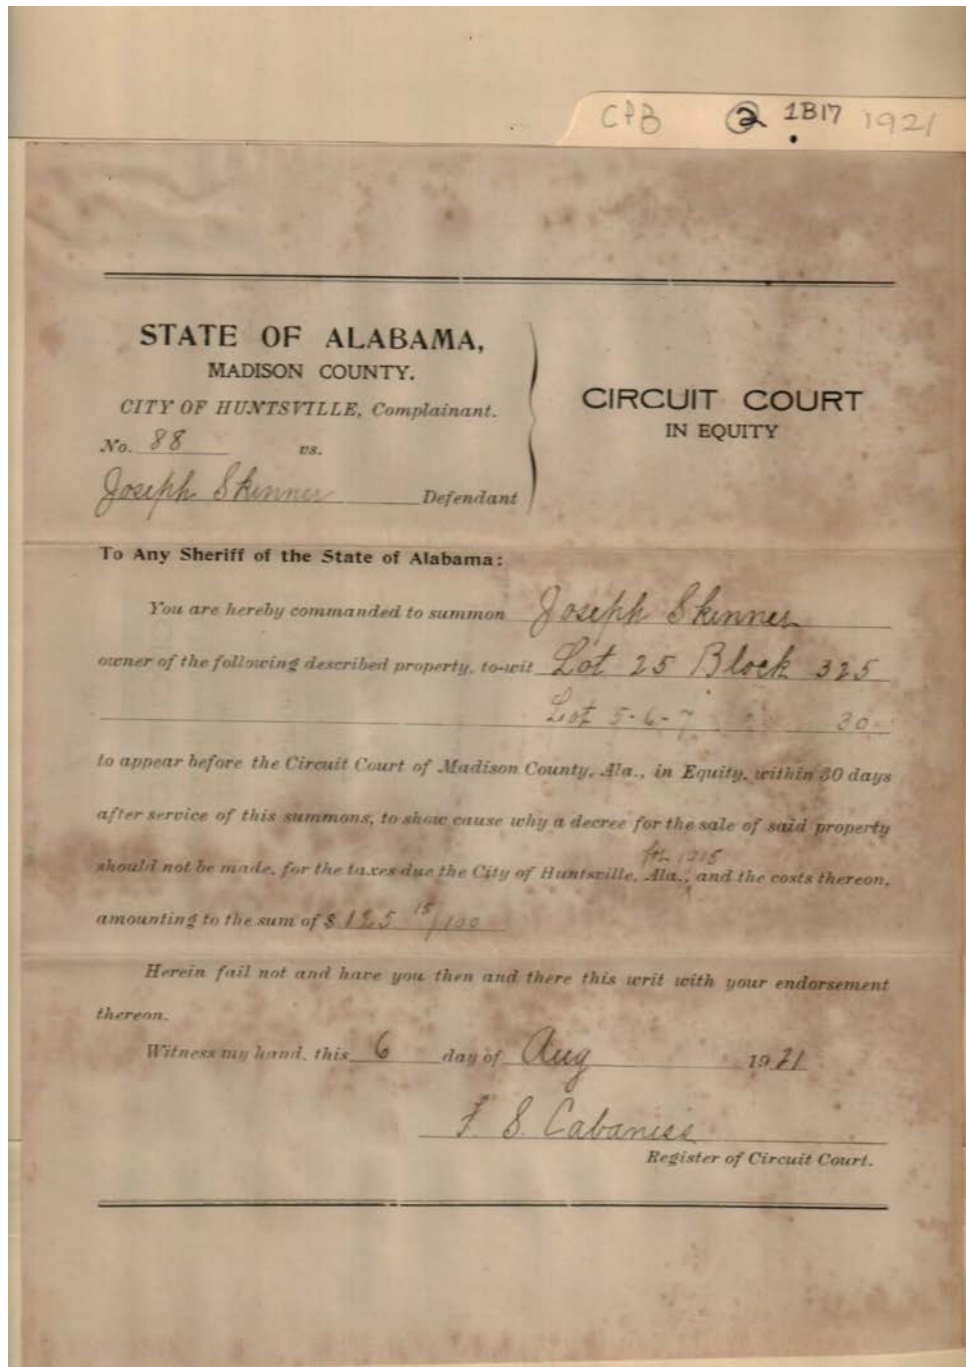 CPB 2 1B17 1921
STATE OF ALABAMA,
MADISON COUNTY.
CITY OF HUNTSVILLE, Complainant.
No. 88 vs.
Joseph Skinner Defendant
CIRCUIT COURT
IN EQUITY
To Any Sheriff of the State of Alabama:
You are hereby commanded to summon Joseph Skinner
owner of the following described property, to-wit Lot 25 Block 325
Lot 5-6-7 " 30
to appear before the Circuit Court of Madison County, Ala., in Equity, within 30 days
after service of this summons, to show cause why a decree for the sale of said property
for 1915
should not be made, for the taxes due the City of Huntsville, Ala., and the costs thereon,
amounting to the sum of $ 125 15/100
Herein fail not and have you then and there this writ with your endorsement
thereon.
Witness my hand, this 6 day of Aug 1921
F. S. Cabaniss
Register of Circuit Court.